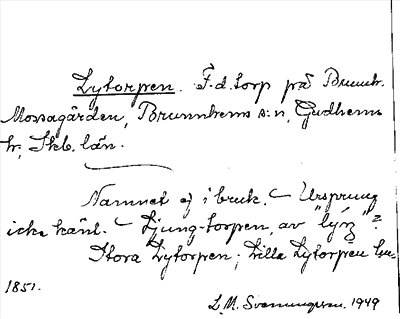 Lytorpen. F.d. torp på Brunnh.
Mossagården, Brunnhems s:n, Gudhems
hr, Skb. län.
Namnet ej i bruk. – Ursprung
icke känt. – Ljung-torpen, av "lýng"?
Stora Lytorpen; Lilla Lytorpen
1851.
L. M. Svenungsson. 1949